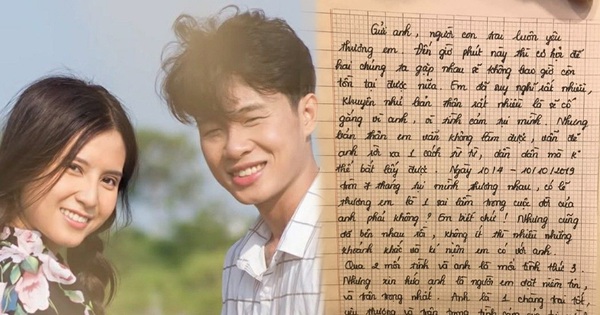 Gửi anh, người con trai luôn yêu
thương em. Đến giờ phút này thì cơ hội để
hai chúng ta gặp nhau sẽ không bao giờ còn
tồn tại được nữa. Em đã suy nghĩ rất nhiều,
khuyên nhủ bản thân rất nhiều là sẽ cố
gắng vì anh, vì tình cảm tụi mình. Nhưng
bản thân em vẫn không làm được, vẫn để
anh rời xa 1 cách từ từ, dần dần mà k
thể bắt lấy được. Ngày 10/4 - 10/10/2019
hơn 7 tháng tụi mình thương nhau, có lẽ
thương em là 1 sai lầm trong cuộc đời của
anh phải không? Em biết chứ! Nhưng cũng
đã bên nhau rồi, không ít thì nhiều những
khoảnh khắc và kỉ niệm em có với anh.
Qua 2 mối tình và anh là mối tình thứ 3.
Nhưng xin hứa anh là người em đặt niềm tin,
và trân trọng nhất. Anh là 1 chàng trai tốt,
yêu thương và trân trọng tình cảm